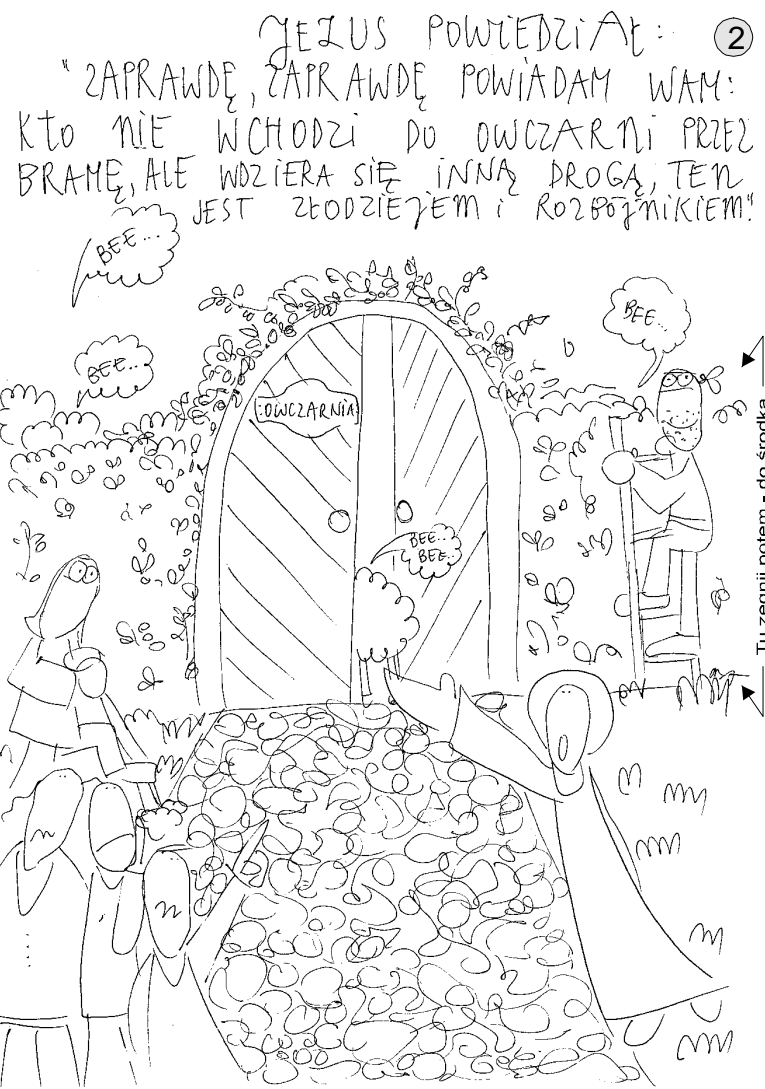 JEZUS POWIEDZIAŁ:
2
"ZAPRAWDĘ, ZAPRAWDĘ POWIADAM WAM:
KTO NIE WCHODZI DO OWCZARNI PRZEZ
BRAMĘ, ALE WDZIERA SIĘ INNĄ DROGĄ, TEN
JEST ZŁODZIEJEM i ROZBÓJNIKIEM."
BEE...
BEE...
BEE...
OWCZARNIA
BEE...
BEE...
Tu zegnij potem - do środka